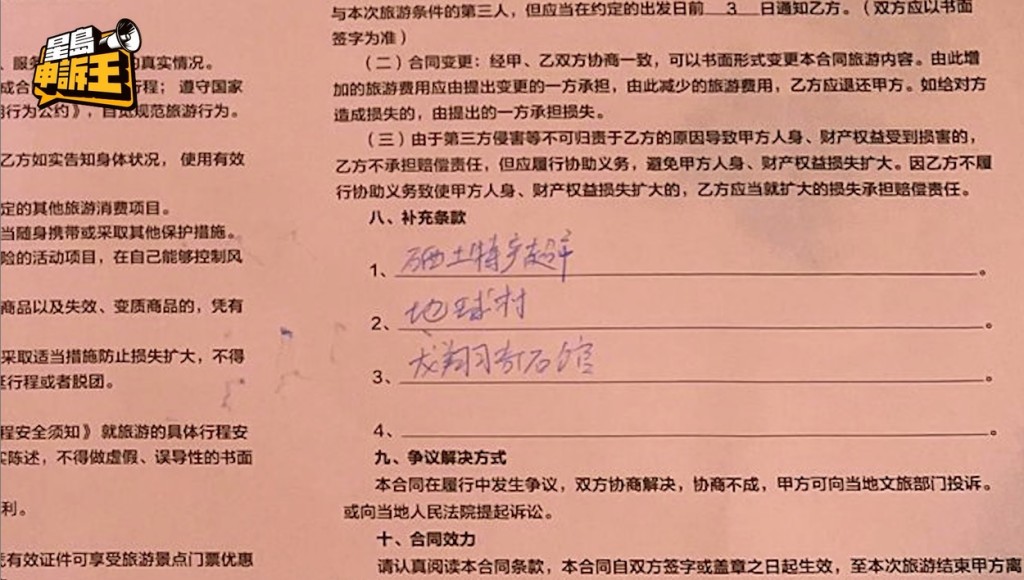 星島
申訴王
服务
的真实情况。
成合
行程；遵守国家
行为公约》，自觉规范旅游行为。
乙方如实告知身体状况，使用有效
定的其他旅游消费项目。
当随身携带或采取其他保护措施。
险的活动项目，在自己能够控制风
商品以及失效、变质商品的，凭有
采取适当措施防止损失扩大，不得
行程或者脱团。
程安全须知》就旅游的具体行程安
陈述，不得做虚假、误导性的书面
利。
有效证件可享受旅游景点门票优惠
与本次旅游条件的第三人，但应当在约定的出发日前 3 日通知乙方。（双方应以书面
签字为准）
（二）合同变更：经甲、乙双方协商一致，可以书面形式变更本合同旅游内容。由此增
加的旅游费用应由提出变更的一方承担，由此减少的旅游费用，乙方应退还甲方。如给对方
造成损失的，由提出的一方承担损失。
（三）由于第三方侵害等不可归责于乙方的原因导致甲方人身、财产权益受到损害的，
乙方不承担赔偿责任，但应履行协助义务，避免甲方人身、财产权益损失扩大。因乙方不履
行协助义务致使甲方人身、财产权益损失扩大的，乙方应当就扩大的损失承担赔偿责任。
八、补充条款
1、硒土特产超市。
2、地球村。
3、龙翔奇石馆。
4、。
九、争议解决方式
本合同在履行中发生争议，双方协商解决，协商不成，甲方可向当地文旅部门投诉。
或向当地人民法院提起诉讼。
十、合同效力
请认真阅读本合同条款，本合同自双方签字或盖章之日起生效，至本次旅游结束甲方离